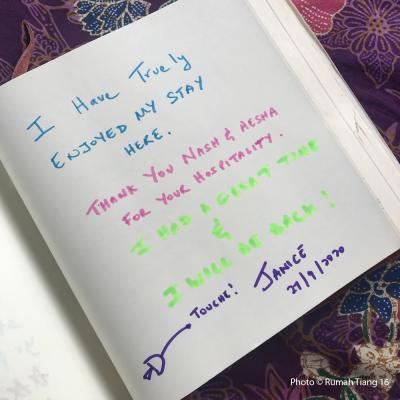 I Have Truely
ENJOYED MY STAY
HERE.
THANK YOU NASH & AESHA
FOR YOUR HOSPITALITY.
I HAD A GREAT TIME
&
I WILL BE BACK!
TOUCHE! JANICE
27/9/2020
Photo © Rumah Tiang 16